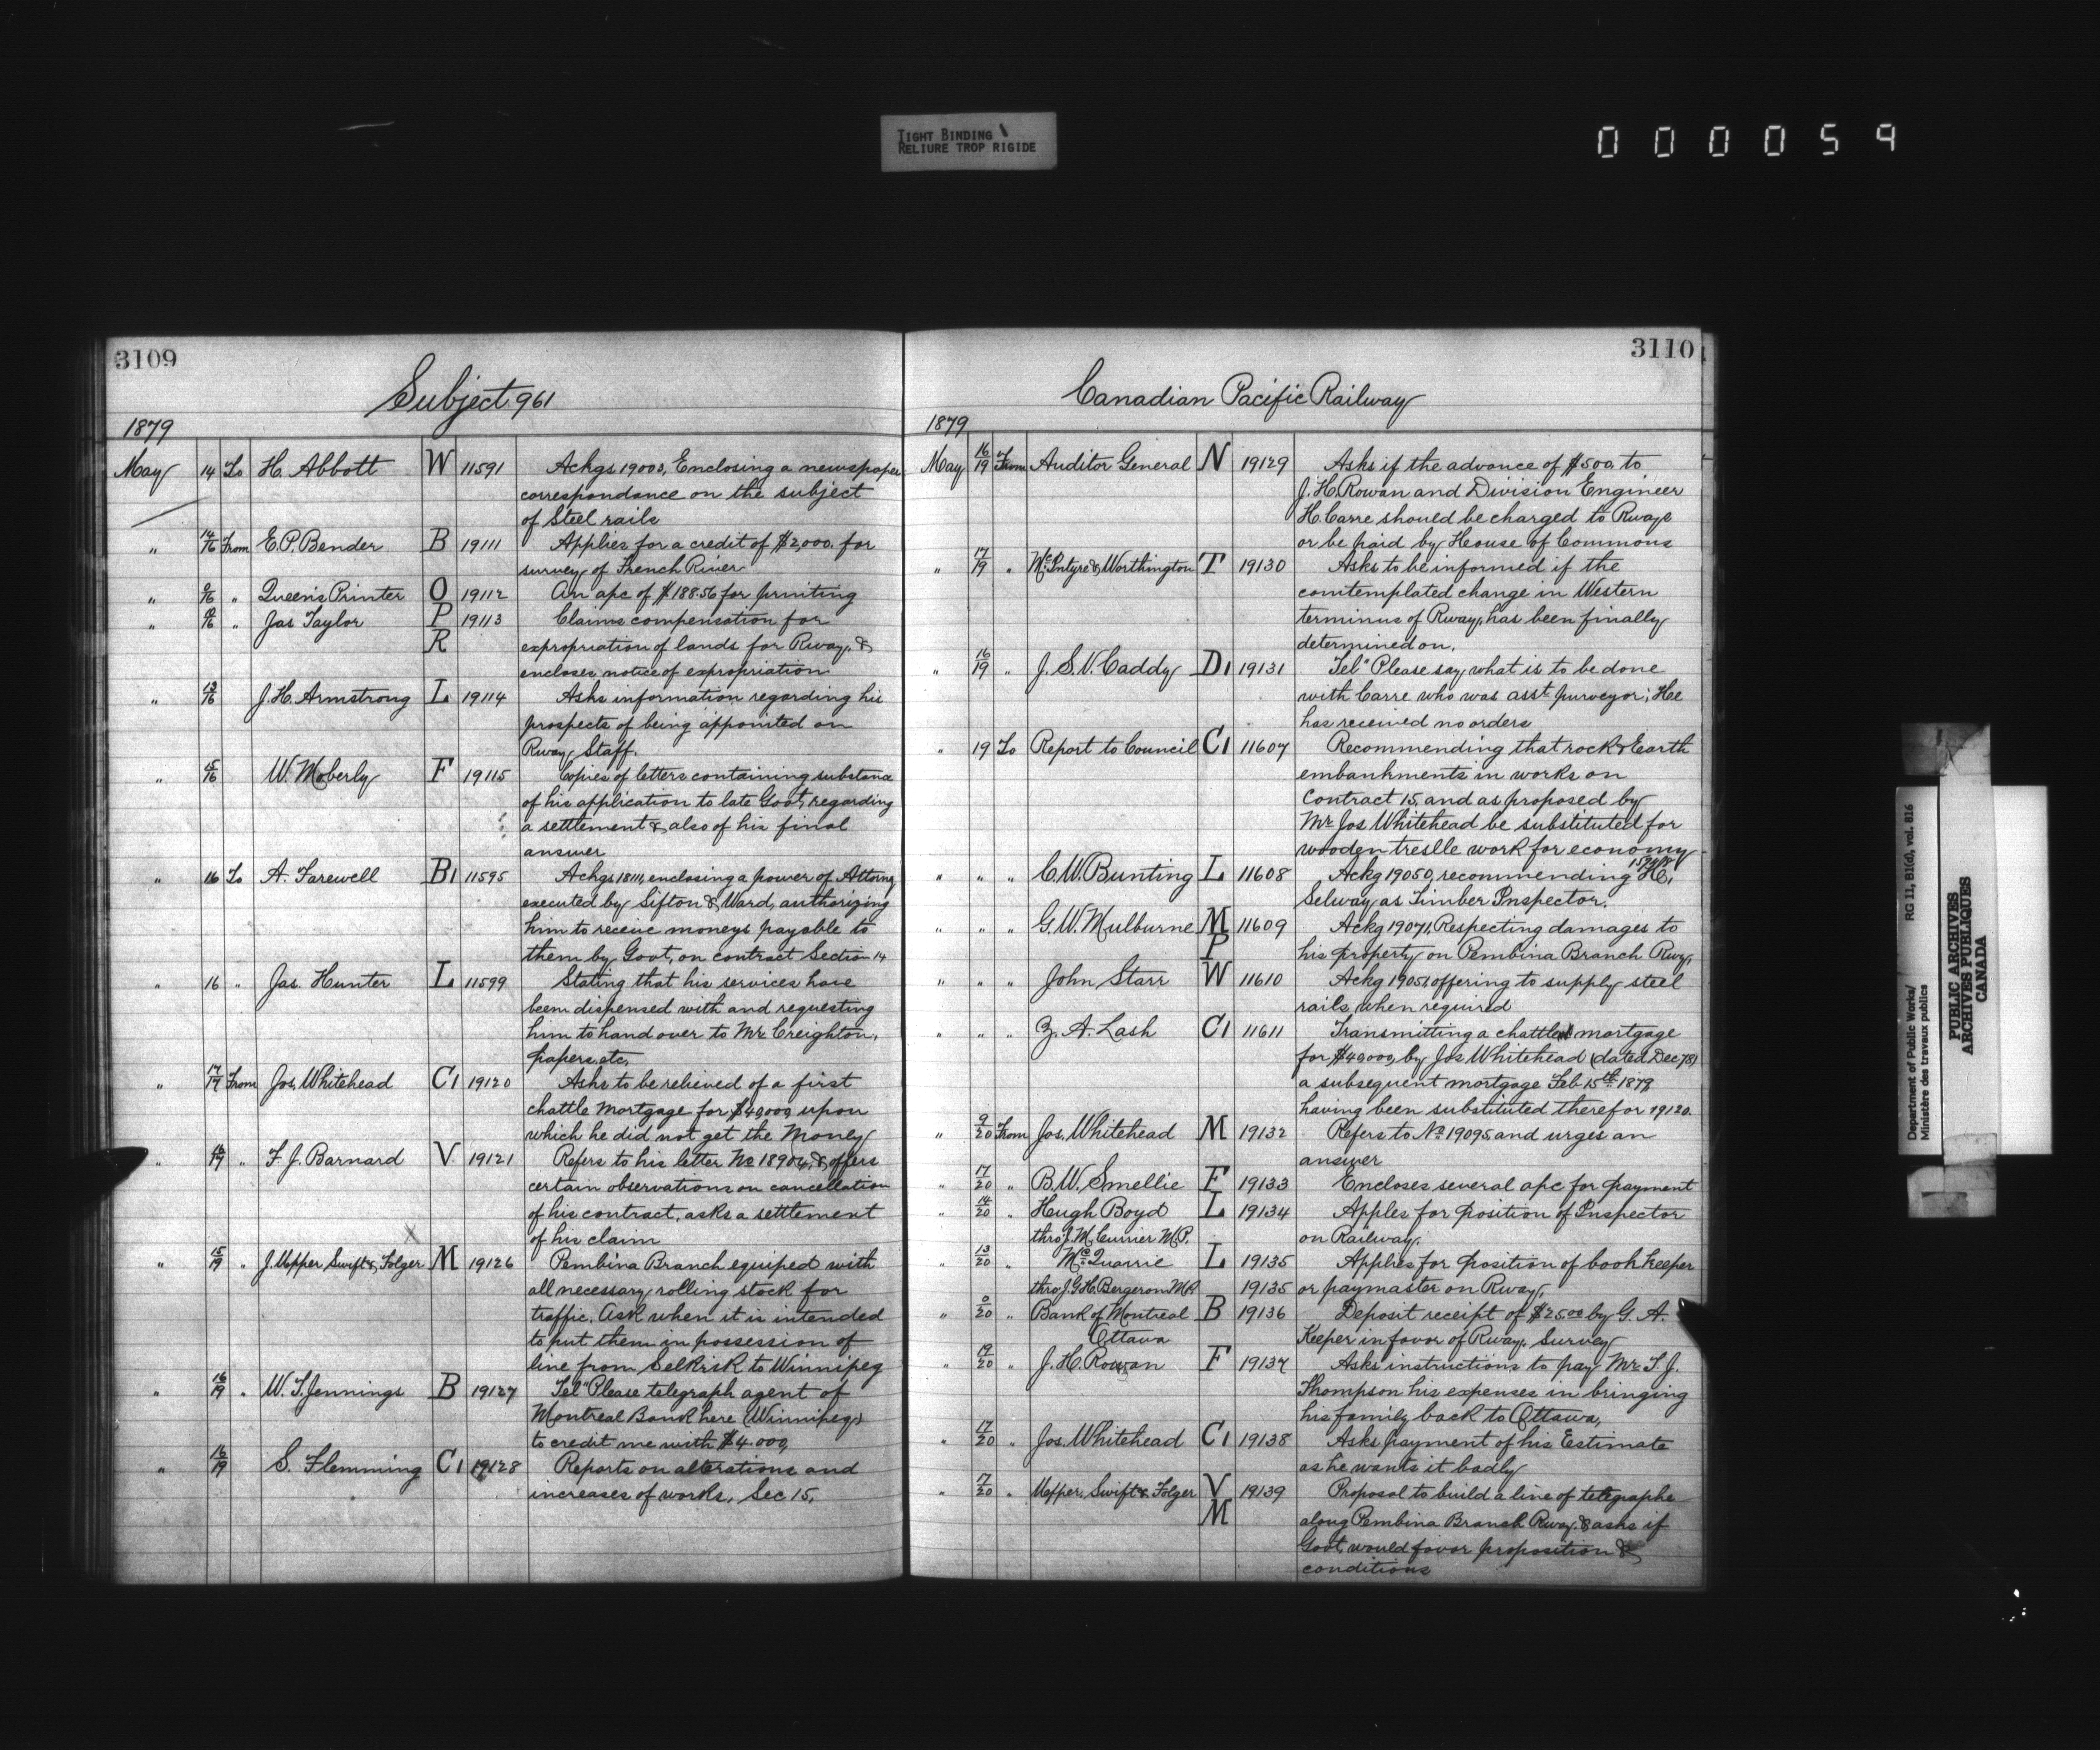 TIGHT BINDING
RELIURE TROP RIGIDE
0000059
3109
Subject 961
1879
May 14 To H. Abbott W 11591 Ackgs 19000, Enclosing a newspaper
correspondance on the subject
of Steel rails
" 14/16 From E.P. Bender B 19111 Applies for a credit of $2,000. for
survey of French River
" 0/16 " Queen's Printer O 19112 An apc of $188.56 for printing
" " Jas Taylor P 19113 Claims compensation for
R expropriation of lands for Rway. &
encloses notice of expropriation
" 13/16 J.H. Armstrong L 19114 Asks information regarding his
prospects of being appointed on
Rway Staff.
" 15/16 W. Moberly F 19115 Copies of letters containing substance
of his application to late Govt, regarding
a settlement & also of his final
answer
" 16 To A. Farewell B1 11595 Ackgs 18111, enclosing a power of Attorny
executed by Sifton & Ward, authorizing
him to receive moneys payable to
them by Govt, on contract Section 14
" 16 " Jas. Hunter L 11599 Stating that his services have
been dispensed with and requesting
him to hand over to Mr. Creighton,
papers, etc,
" 17/19 From Jos, Whitehead C1 19120 Asks to be relieved of a first
chattle mortgage for $40,000, upon
which he did not get the Money
" " F. J. Barnard V 19121 Refers to his letter No 18904, & offers
certain observations on cancellation
of his contract, asks a settlement
of his claim
" 15/19 " J. Upper Swift & Folger M 19126 Pembina Branch equiped with
all necessary rolling stock for
traffic. Ask when it is intended
to put them in possession of
line from Selkirk to Winnipeg
" 16/19 " W. T. Jennings B 19127 Tel" Please telegraph agent of
Montreal Bank here (Winnipeg)
to credit me with $4.000,
" 16/19 S. Flemming C1 19128 Reports on alterations and
increases of works, Sec 15,
3110
Canadian Pacific Railway
1879
May 16/19 From Auditor General N 19129 Asks if the advance of $500, to
J. H. Rowan and Division Engineer
H. Carre should be charged to Rways
or be paid by House of Commons
" 17/19 " McIntyre & Worthington T 19130 Asks to be informed if the
comtemplated change in Western
terminus of Rway, has been finally
determined on,
" 16/19 " J. S. V. Caddy D1 19131 Tel" Please say what is to be done
with Carre who was asst purveyor; He
has received no orders
" 19 To Report to Council C1 11607 Recommending that rock & Earth
embankments in works on
contract 15, and as proposed by
Mr. Jos Whitehead be substituted for
wooden treslle work for economy
" " " C. W. Bunting L 11608 Ackg 19050, recommending H,
Selway as Timber Inspector.
" " " G. W. Mulburne M 11609 Ackg 19071, Respecting damages to
P his property on Pembina Branch Rwy,
" " " John Starr W 11610 Ackg 19051, offering to supply steel
rails when required
" " " Z. A. Lash C1 11611 Transmitting a chattle mortgage
for $40,000, by Jos Whitehead (dated Dec 78)
a subsequent mortgage Feb 15th 1879
having been substituted therefor 19120.
" 9/20 From Jos, Whitehead M 19132 Refers to No 19095 and urges an
answer
" 17/20 " B. W. Smellie F 19133 Encloses several apc for payment
" 14/20 " Hugh Boyd L 19134 Apples for position of Inspector
thro J. M. Currier M.P. on Railway.
" 13/20 " McQuarrie L 19135 Applies for position of book keeper
thro J. G. H. Bergeron M.P. 19135 or paymaster on Rway,
" 0/20 " Bank of Montreal B 19136 Deposit receipt of $25.00 by G. A.
Ottawa Keeper in favor of Rway. Survey
" 19/20 " J. H. Rowan F 19137 Asks instructions to pay Mr. T. J.
Thompson his expenses in bringing
his family back to Ottawa,
" 17/20 " Jos. Whitehead C1 19138 Asks payment of his Estimate
as he wants it badly
" 17/20 " Upper, Swift & Folger V 19139 Proposal to build a line of telegraphe
M along Pembina Branch Rway. & asks if
Govt, would favor proposition &
conditions
Department of Public Works/ RG 11, B1(d), vol. 816
Ministère des travaux publics
PUBLIC ARCHIVES
ARCHIVES PUBLIQUES
CANADA